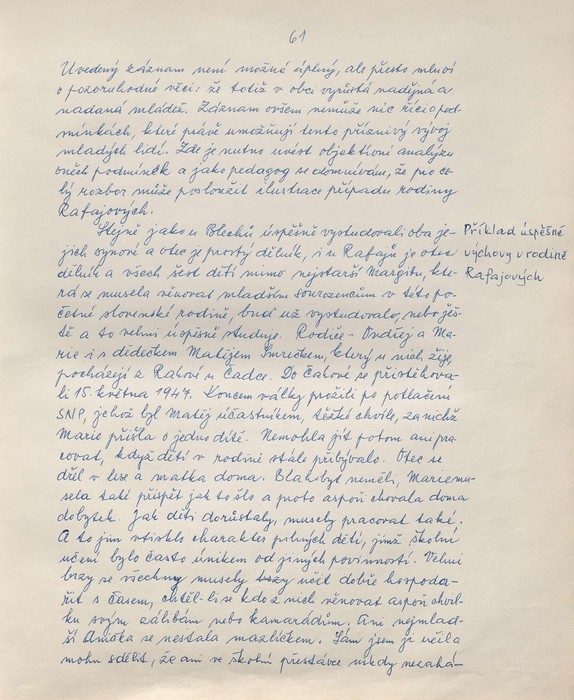 61
Uvedený záznam není možná úplný, ale přesto mluví
o pozoruhodné věci: že totiž v obci vyrůstá nadějná a
nadaná mládež. Záznam ovšem nemůže nic říci o pod-
mínkách, které právě umožňují tento příznivý vývoj
mladých lidí. Zde je nutno uvést objektivní analýzu
oněch podmínek a jako pedagog se domnívám, že pro ce-
lý rozbor může posloužit ilustrace případu rodiny
Rafajových.
Stejně jako u Blechů úspěšně vystudovali oba je-
jich synové a otec je prostý dělník, i u Rafajů je otec
dělník a všech šest dětí mimo nejstarší Margitu, kte-
rá se musela věnovat mladším sourozencům v této po-
četné slovenské rodině, buď už vystudovalo, nebo ješ-
tě a to velmi úspěšně studuje. Rodiče - Ondřej a Ma-
rie i s dědečkem Matějem Smrečkem, který u nich žije,
pocházejí z Rakové u Čadce. Do Čakové se přistěhova-
li 15. května 1947. Koncem války prožili po potlačení
SNP, jehož byl Matěj účastníkem, těžké chvíle, za nichž
Marie přišla o jedno dítě. Nemohla jít potom ani pra-
covat, když dětí v rodině stále přibývalo. Otec se
dřel v lese a matka doma. Blahobyt neměli, Marie mu-
sela také přispět jak to šlo a proto aspoň chovala doma
dobytek. Jak děti dorůstaly, musely pracovat také.
A to jim vtisklo charakter pilných dětí, jimž školní
učení bylo často únikem od jiných povinností. Velmi
brzy se všechny musely brzy učit dobře hospoda-
řit s časem, chtěl-li se kdo z nich věnovat aspoň chvil-
ku svým zálibám nebo kamarádům. Ani nejmlad-
ší se nestala mazlíčkem. Sám jsem ji učil a
mohu sdělit, že ani ve školní přestávce nikdy nezahá-
Příklad úspěšné
výchovy v rodině
Rafajových